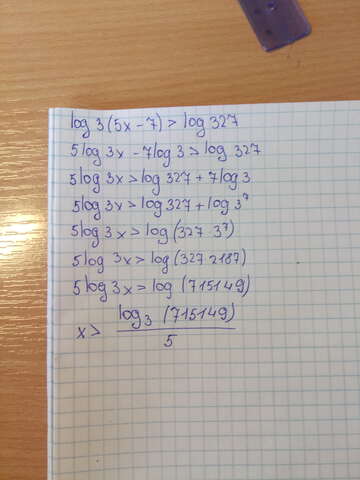 log 3(5x-7) > log 327
5log 3x - 7log 3 > log 327
5log 3x > log 327 + 7log 3
5log 3x > log 327 + log 3⁷
5log 3x > log (327 · 3⁷)
5log 3x > log (327 · 2187)
5log 3x > log (715149)
x > log₃ (715149) / 5